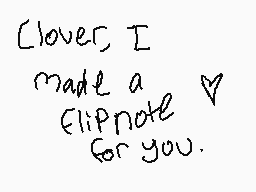 Clover, I
made a
flipnote
for you.